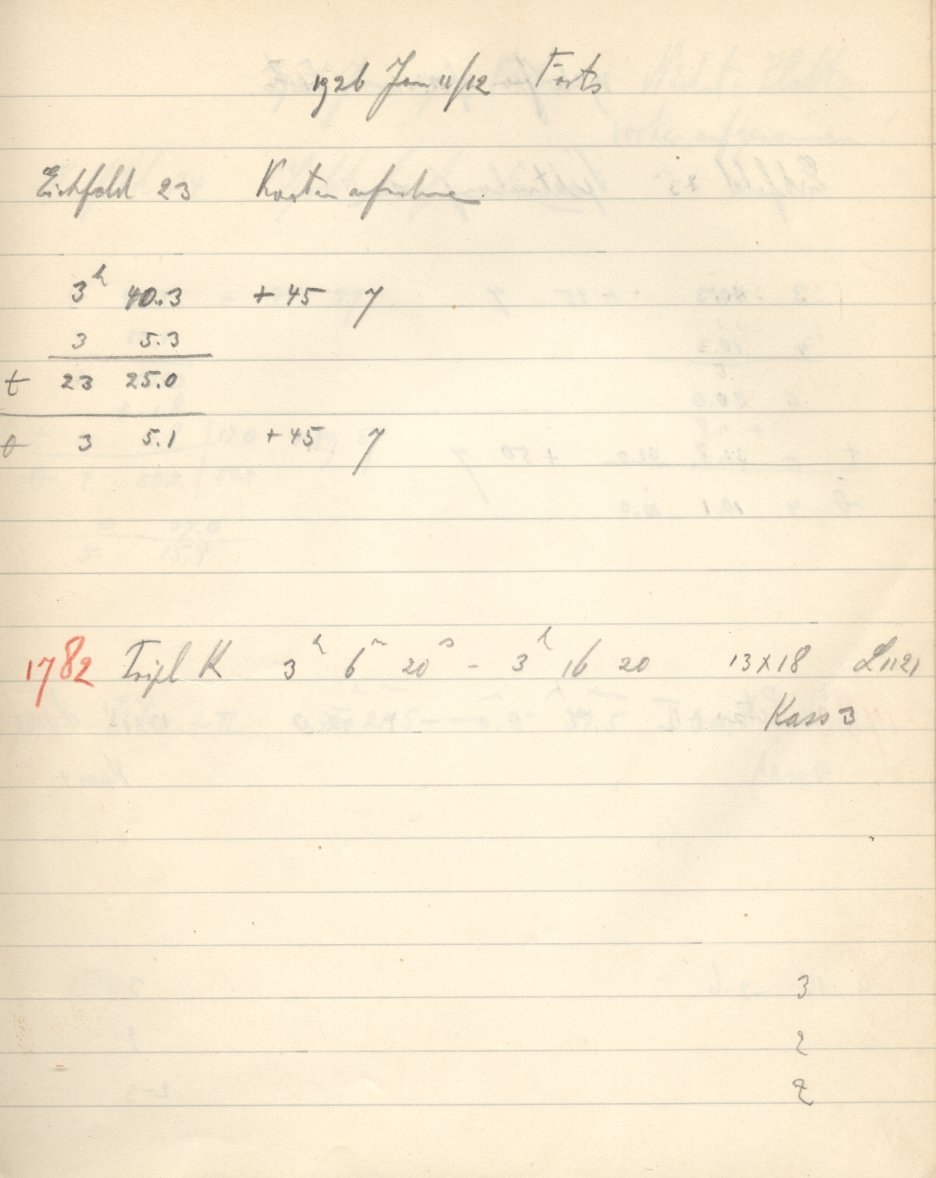 1926 Jan 11/12 Forts
Eichfeld 23 Kartenaufnahme.
3ʰ 40.3 + 45 7
3 5.3
t 23 25.0
θ 3 5.1 + 45 7
1782 Tripl K 3ʰ 6ᵐ 20ˢ - 3ʰ 16 20 13×18 L1121
Kass 3
3
2
2